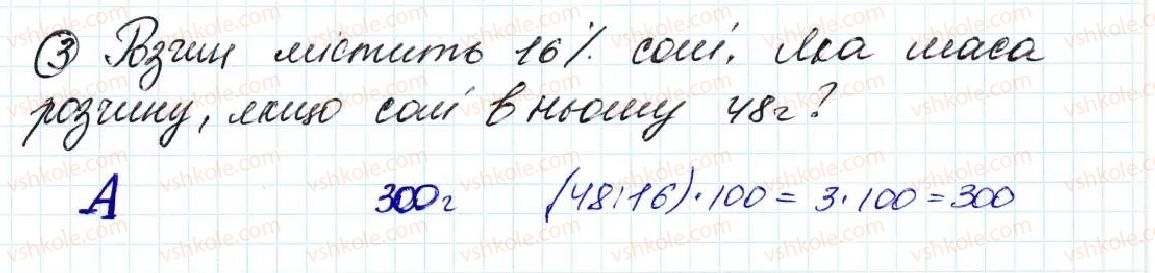 ③ Розчин містить 16% солі. Яка маса
розчину, якщо солі в ньому 48г?
А 300г (48:16)·100=3·100=300